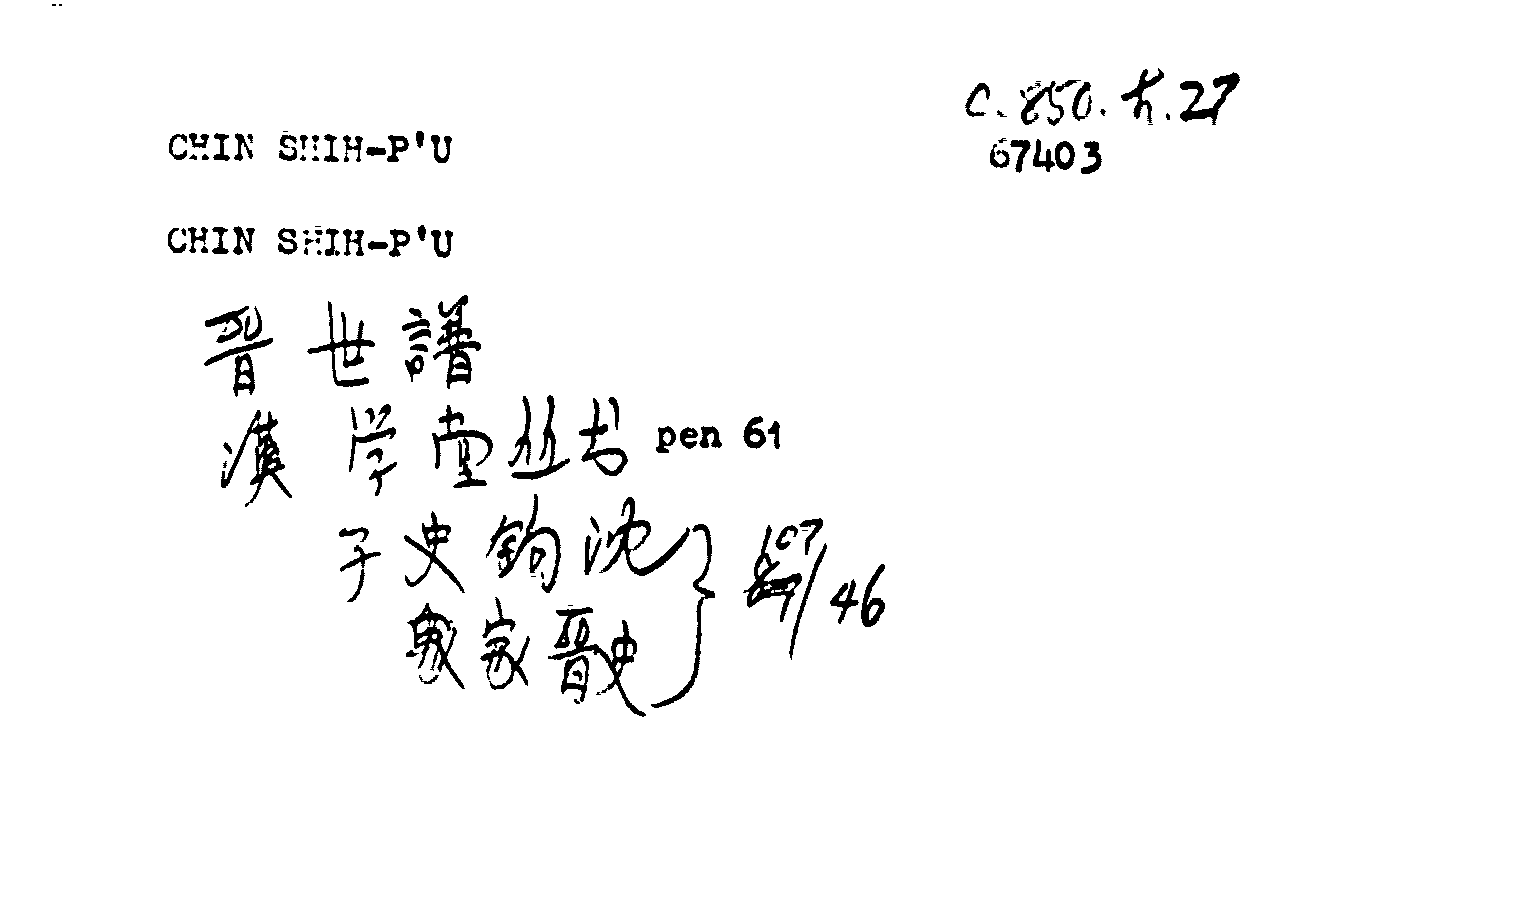 C.850.ħ.27
67403
CHIN SHIH-P'U
CHIN SHIH-P'U
晋世譜
漢学堂丛书 pen 61
子史鉤沈
衆家晋史
107/46